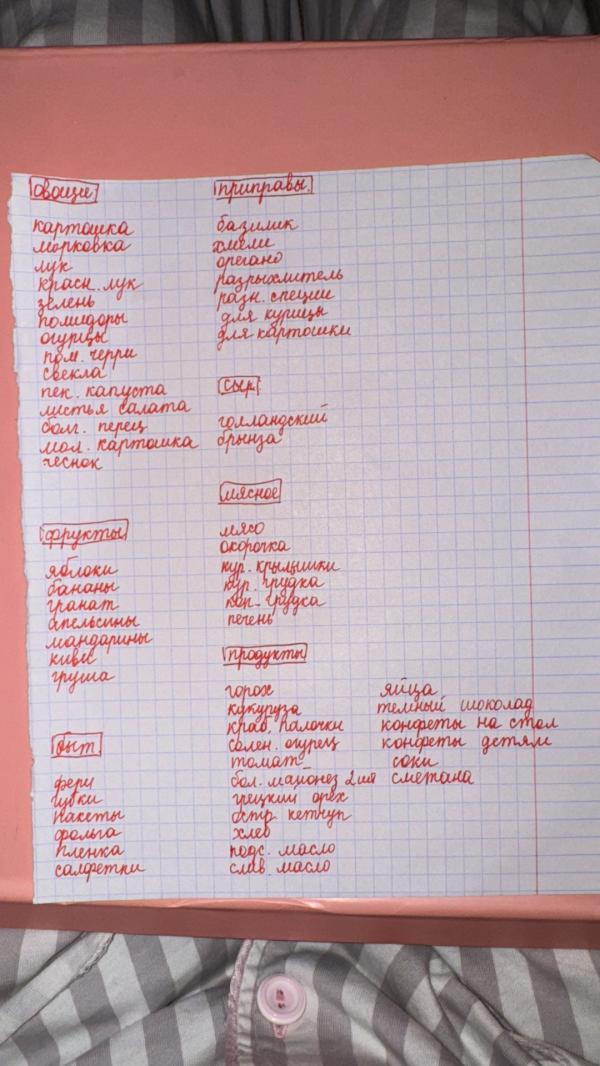 овощи
картошка
морковка
лук
красн. лук
зелень
помидоры
огурцы
пом. черри
свекла
пек. капуста
листья салата
болг. перец
мол. картошка
чеснок
фрукты
яблоки
бананы
гранат
апельсины
мандарины
киви
груша
быт
фери
губки
пакеты
фольга
пленка
салфетки
приправы.
базилик
хмели
орегано
разрыхлитель
разн. специи
для курицы
для картошки
сыр
голландский
брынза
мясное
мясо
окорочка
кур. крылышки
кур. грудка
коп. грудка
печень
продукты
горох
кукуруза
краб. палочки
солен. огурец
томат
бол. майонез 2 шт
грецкий орех
остр. кетчуп
хлеб
подс. масло
слив. масло
яйца
темный шоколад
конфеты на стол
конфеты детям
соки
сметана